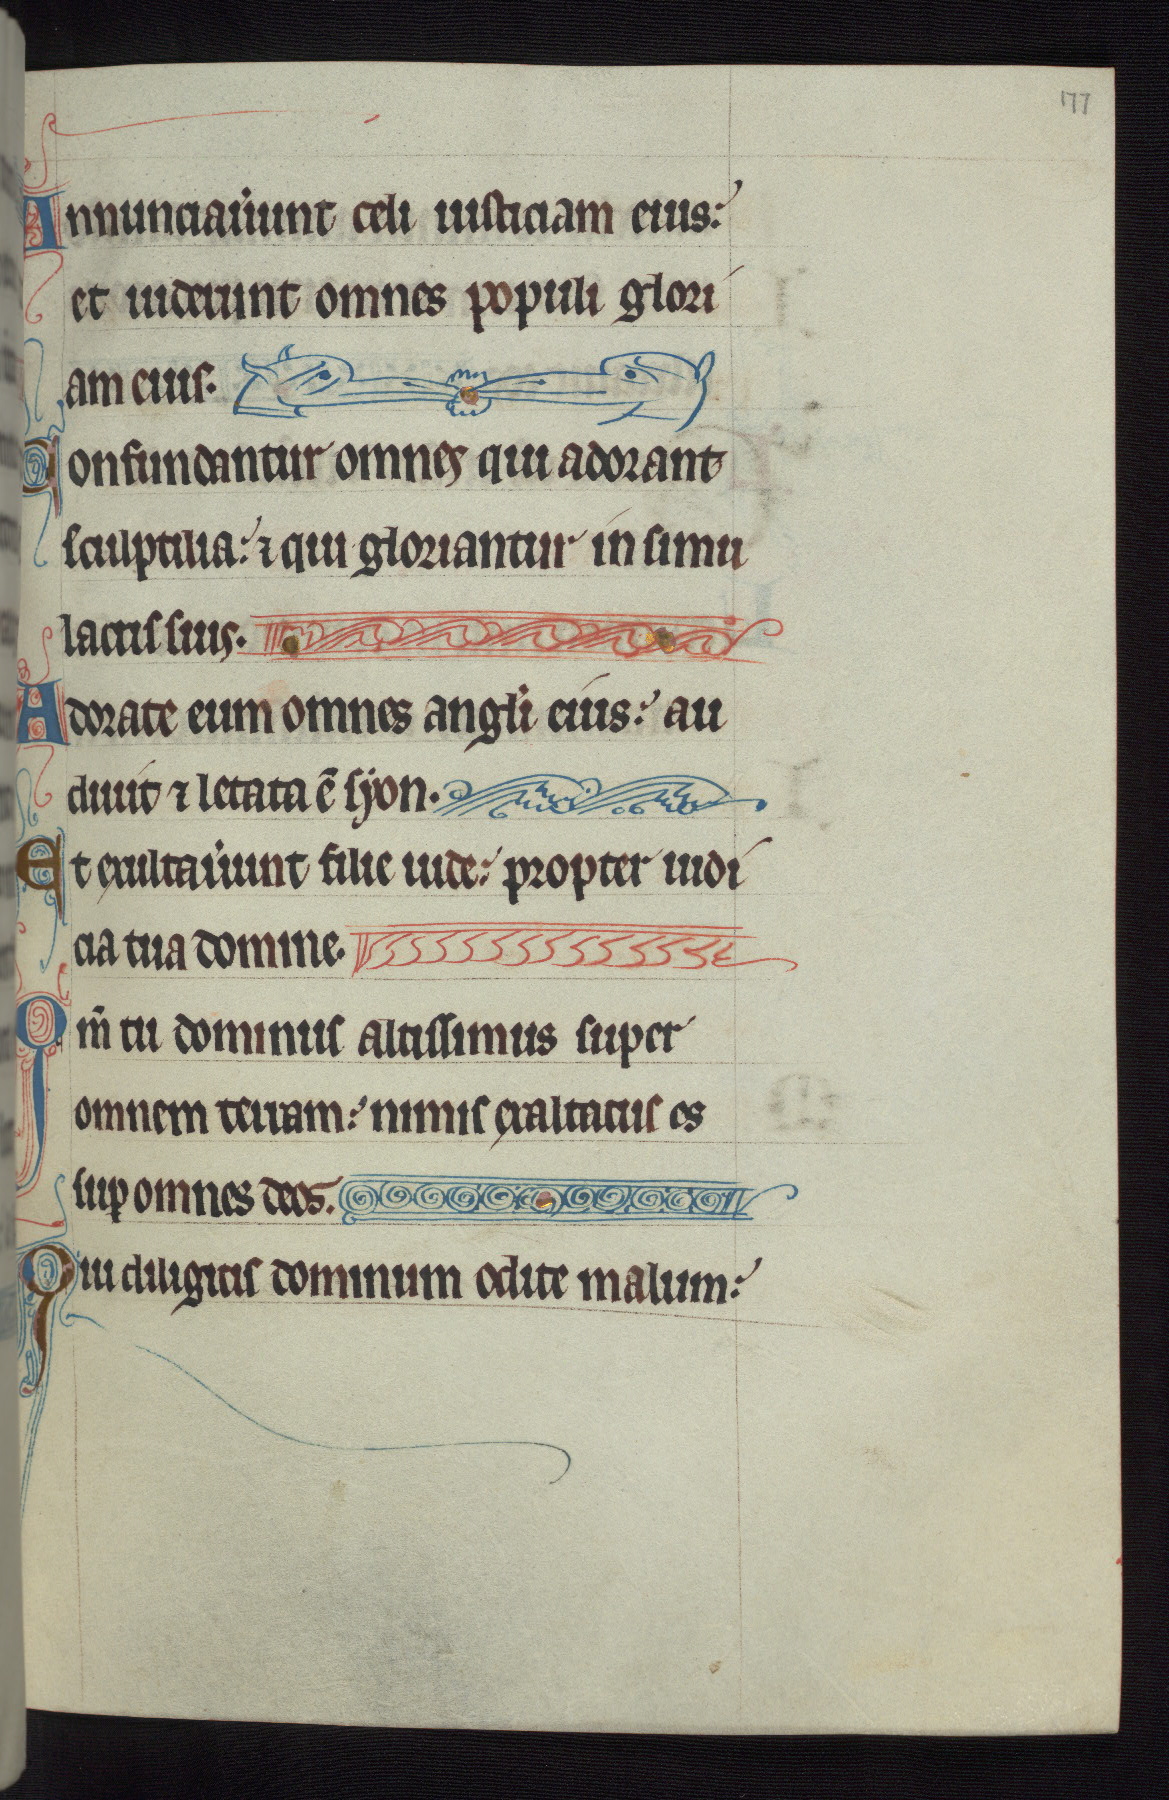 177
Annunciaůunt celi iusticiam eius:
et uiderunt omnes populi glori
am eius.
Confundantur omnes qui adorant
sculptilia: ⁊ qui gloriantur in simu
lacris suis.
Adorate eum omnes angli eius: au
diuit ⁊ letata ē syon.
Et exultaůunt filie iude: propter iudi
cia tua domine.
Qm̄ tu dominus altissimus super
omnem terram: nimis exaltatus es
suꝑ omnes deos.
Qui diligitis dominum odite malum: